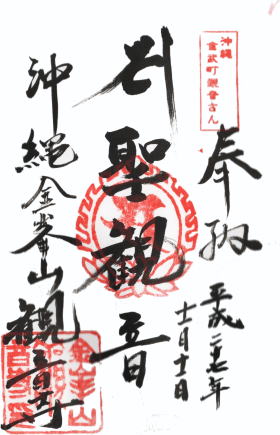 沖縄
金武町観音さん
奉納
平成二十七年
十一月十一日
聖観音
沖縄金峯山観音寺
金峯山